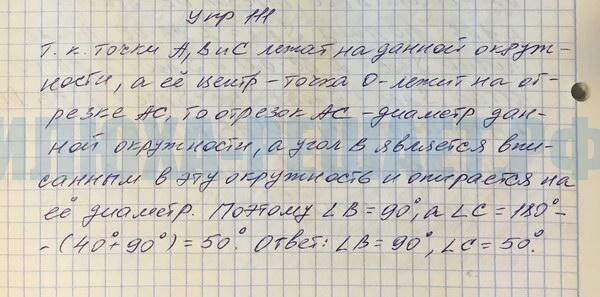 Упр 111
Т. к. точки A, B и C лежат на данной окруж-
ности, а её центр - точка O - лежит на от-
резке AC, то отрезок AC - диаметр дан-
ной окружности, а угол B является впи-
санным в эту окружность и опирается на
её диаметр. Поэтому ∠B = 90°, а ∠C = 180° -
- (40° + 90°) = 50°. Ответ: ∠B = 90°, ∠C = 50°.